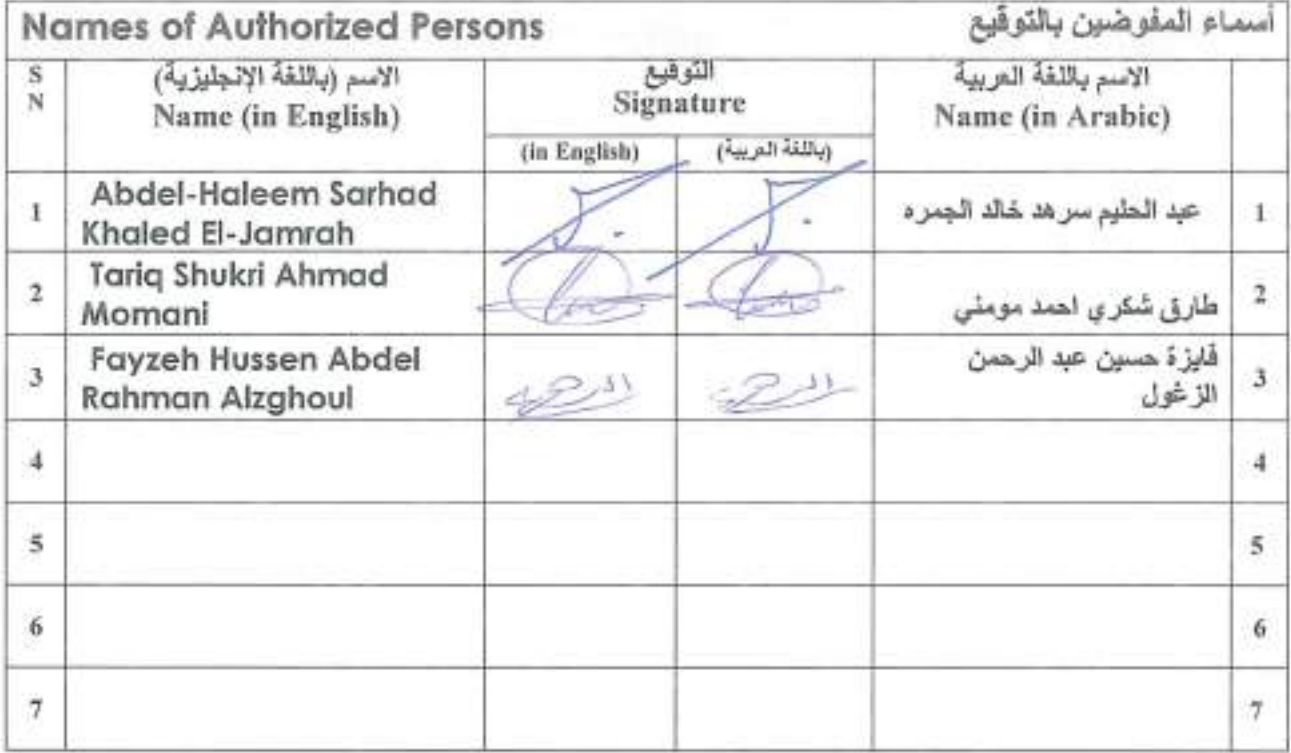 Names of Authorized Persons
أسماء المفوضين بالتوقيع
S
N
الاسم (باللغة الإنجليزية)
Name (in English)
التوقيع
Signature
الاسم باللغة العربية
Name (in Arabic)
(in English)
(باللغة العربية)
1
Abdel-Haleem Sarhad
Khaled El-Jamrah
عبد الحليم سرهد خالد الجمره
1
2
Tariq Shukri Ahmad
Momani
طارق شكري احمد مومني
2
3
Fayzeh Hussen Abdel
Rahman Alzghoul
فايزة حسين عبد الرحمن
الزغول
3
4
4
5
5
6
6
7
7